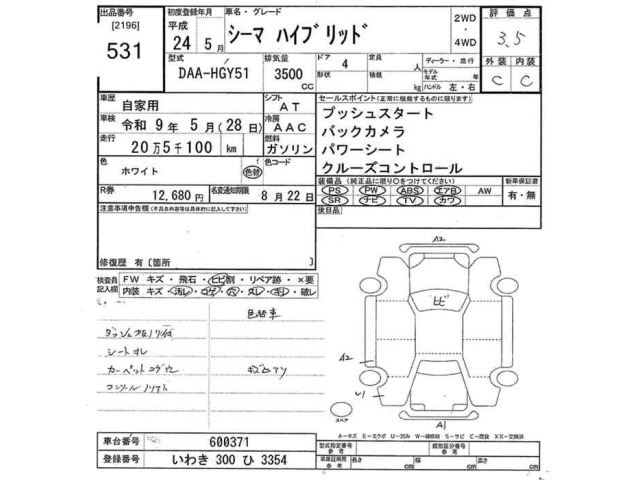 出品番号
[2196]
531
初度登録年月
平成
24 5月
車名・グレード
シーマ ハイブリッド
2WD
・
4WD
評価点
3.5
外装 内装
C C
型式
DAA-HGY51
排気量
3500
CC
ドア
4
形状
定員
人
積載
kg
ディーラー・並行
モデル年式 年
ハンドル 左・右
車歴
自家用
シフト
AT
車検
令和 9年 5月(28日)
冷房
AAC
走行
20万5千100 km
燃料
ガソリン
色
ホワイト
色替
色コード
R券
12,680円
名変通知期限
8月22日
セールスポイント(正常に機能するものに限ります)
プッシュスタート
バックカメラ
パワーシート
クルーズコントロール
装備品(純正品に限り○をつけてください)
PS PW ABS エアB AW
SR ナビ TV カワ
新車保証書
有・無
後日品
注意事項申告欄
修復歴 有〔箇所 〕
検査員記入欄
FW キズ・飛石・ヒビ割・リペア跡・×要
内装 キズ・汚レ・コゲ・穴・スレ・キレ・破レ
色替車
シートヨレ
カーペットコゲ穴
A2
ヒビ
A2
U1
A1
スペア
A-キズ E-エクボ U-凹み W-補修跡 S-サビ C-腐食 XX-交換済
車台番号
600371
登録番号
いわき 300 ひ 3354
型式指定番号
参考
類別区分番号
参考
車庫証明用
参考
長さ cm
幅 cm
高さ cm